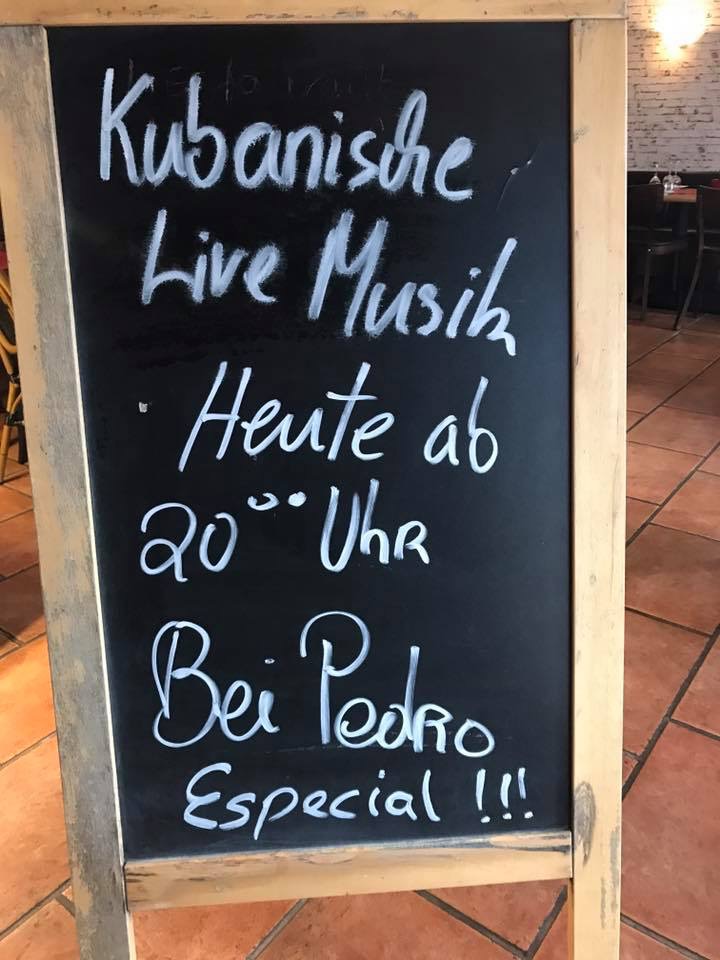 Kubanische
Live Musik
Heute ab
20°° Uhr
Bei Pedro
Especial !!!